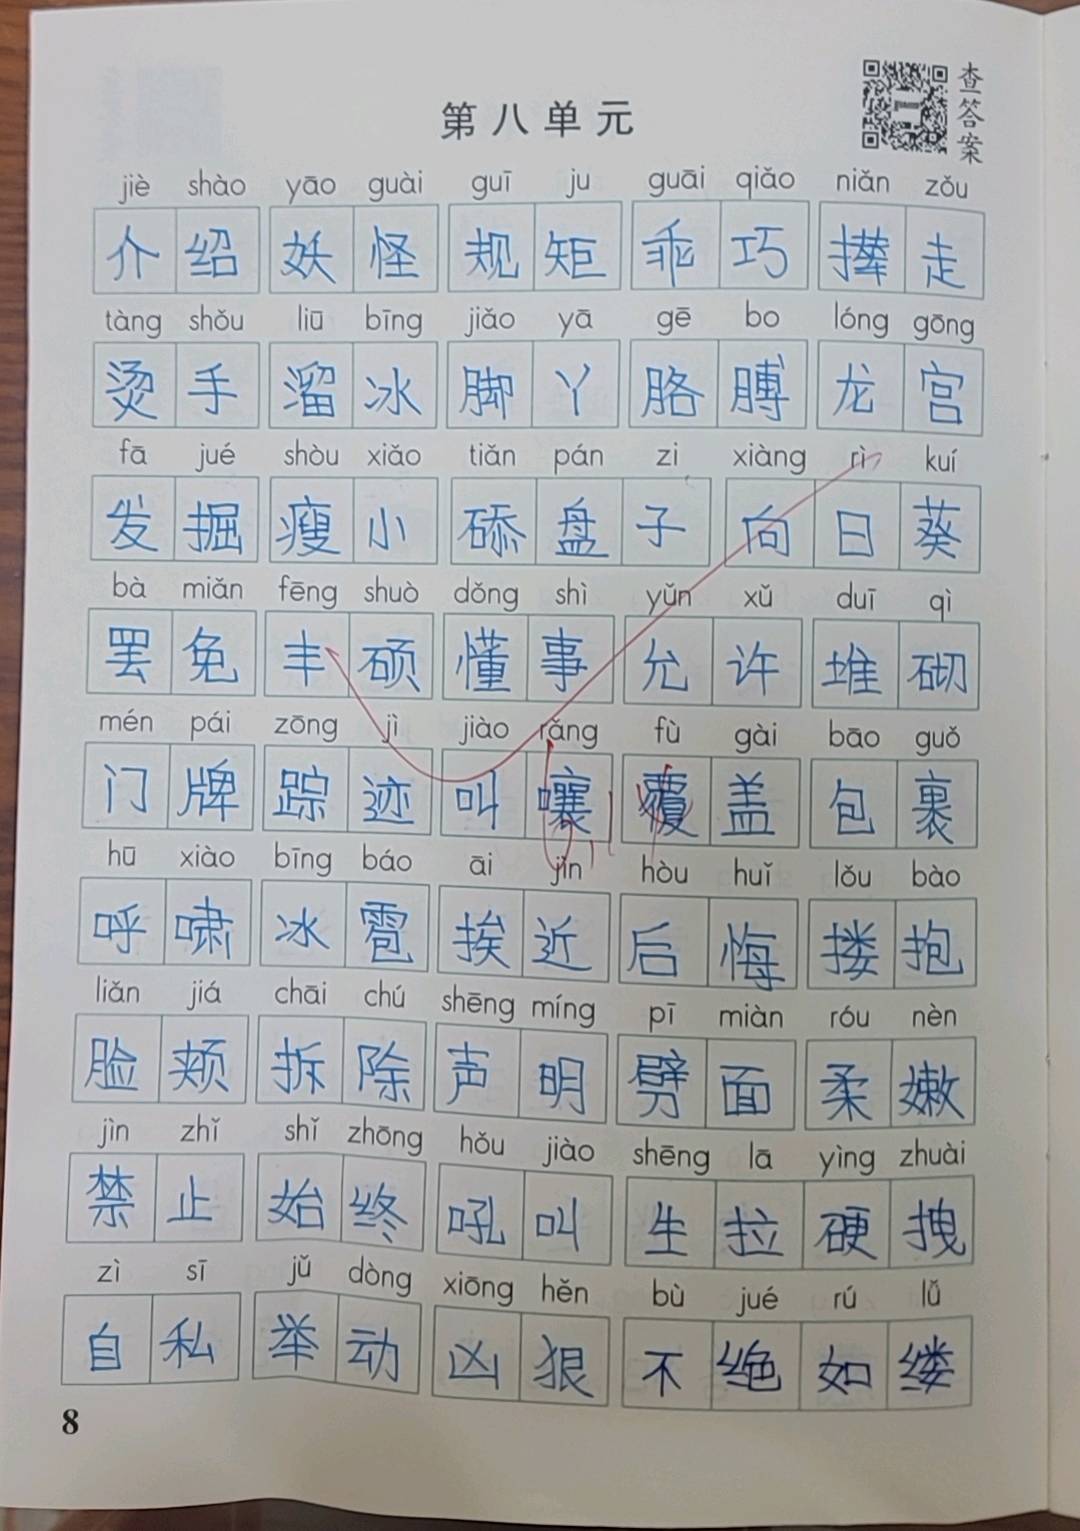 查答案
第八单元
jiè shào yāo guài guī ju guāi qiǎo niǎn zǒu
介绍 妖怪 规矩 乖巧 撵走
tàng shǒu liū bīng jiǎo yā gē bo lóng gōng
烫手 溜冰 脚丫 胳膊 龙宫
fā jué shòu xiǎo tiǎn pán zi xiàng rì kuí
发掘 瘦小 舔盘子 向日葵
bà miǎn fēng shuò dǒng shì yǔn xǔ duī qì
罢免 丰硕 懂事 允许 堆砌
mén pái zōng jì jiào rǎng fù gài bāo guǒ
门牌 踪迹 叫嚷 覆盖 包裹
hū xiào bīng báo āi jìn hòu huǐ lǒu bào
呼啸 冰雹 挨近 后悔 搂抱
liǎn jiá chāi chú shēng míng pī miàn róu nèn
脸颊 拆除 声明 劈面 柔嫩
jìn zhǐ shǐ zhōng hǒu jiào shēng lā yìng zhuài
禁止 始终 吼叫 生拉硬拽
zì sī jǔ dòng xiōng hěn bù jué rú lǚ
自私 举动 凶狠 不绝如缕
8